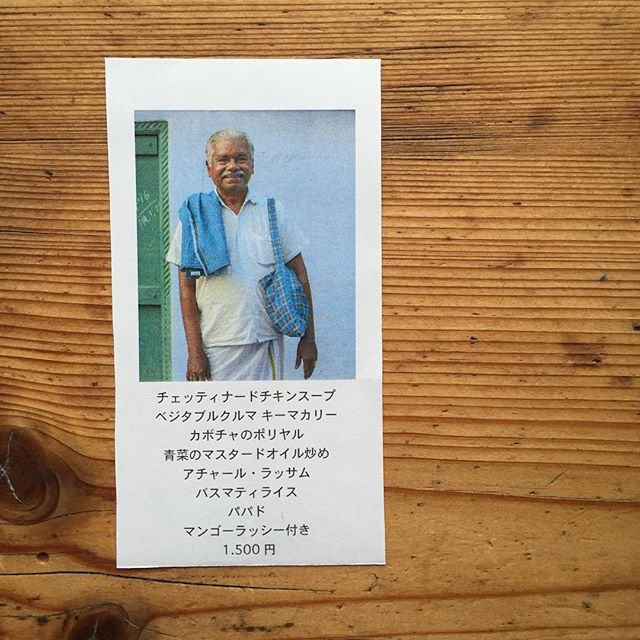 チェッティナードチキンスープ
ベジタブルクルマ キーマカリー
カボチャのポリヤル
青菜のマスタードオイル炒め
アチャール・ラッサム
バスマティライス
パパド
マンゴーラッシー付き
1.500 円